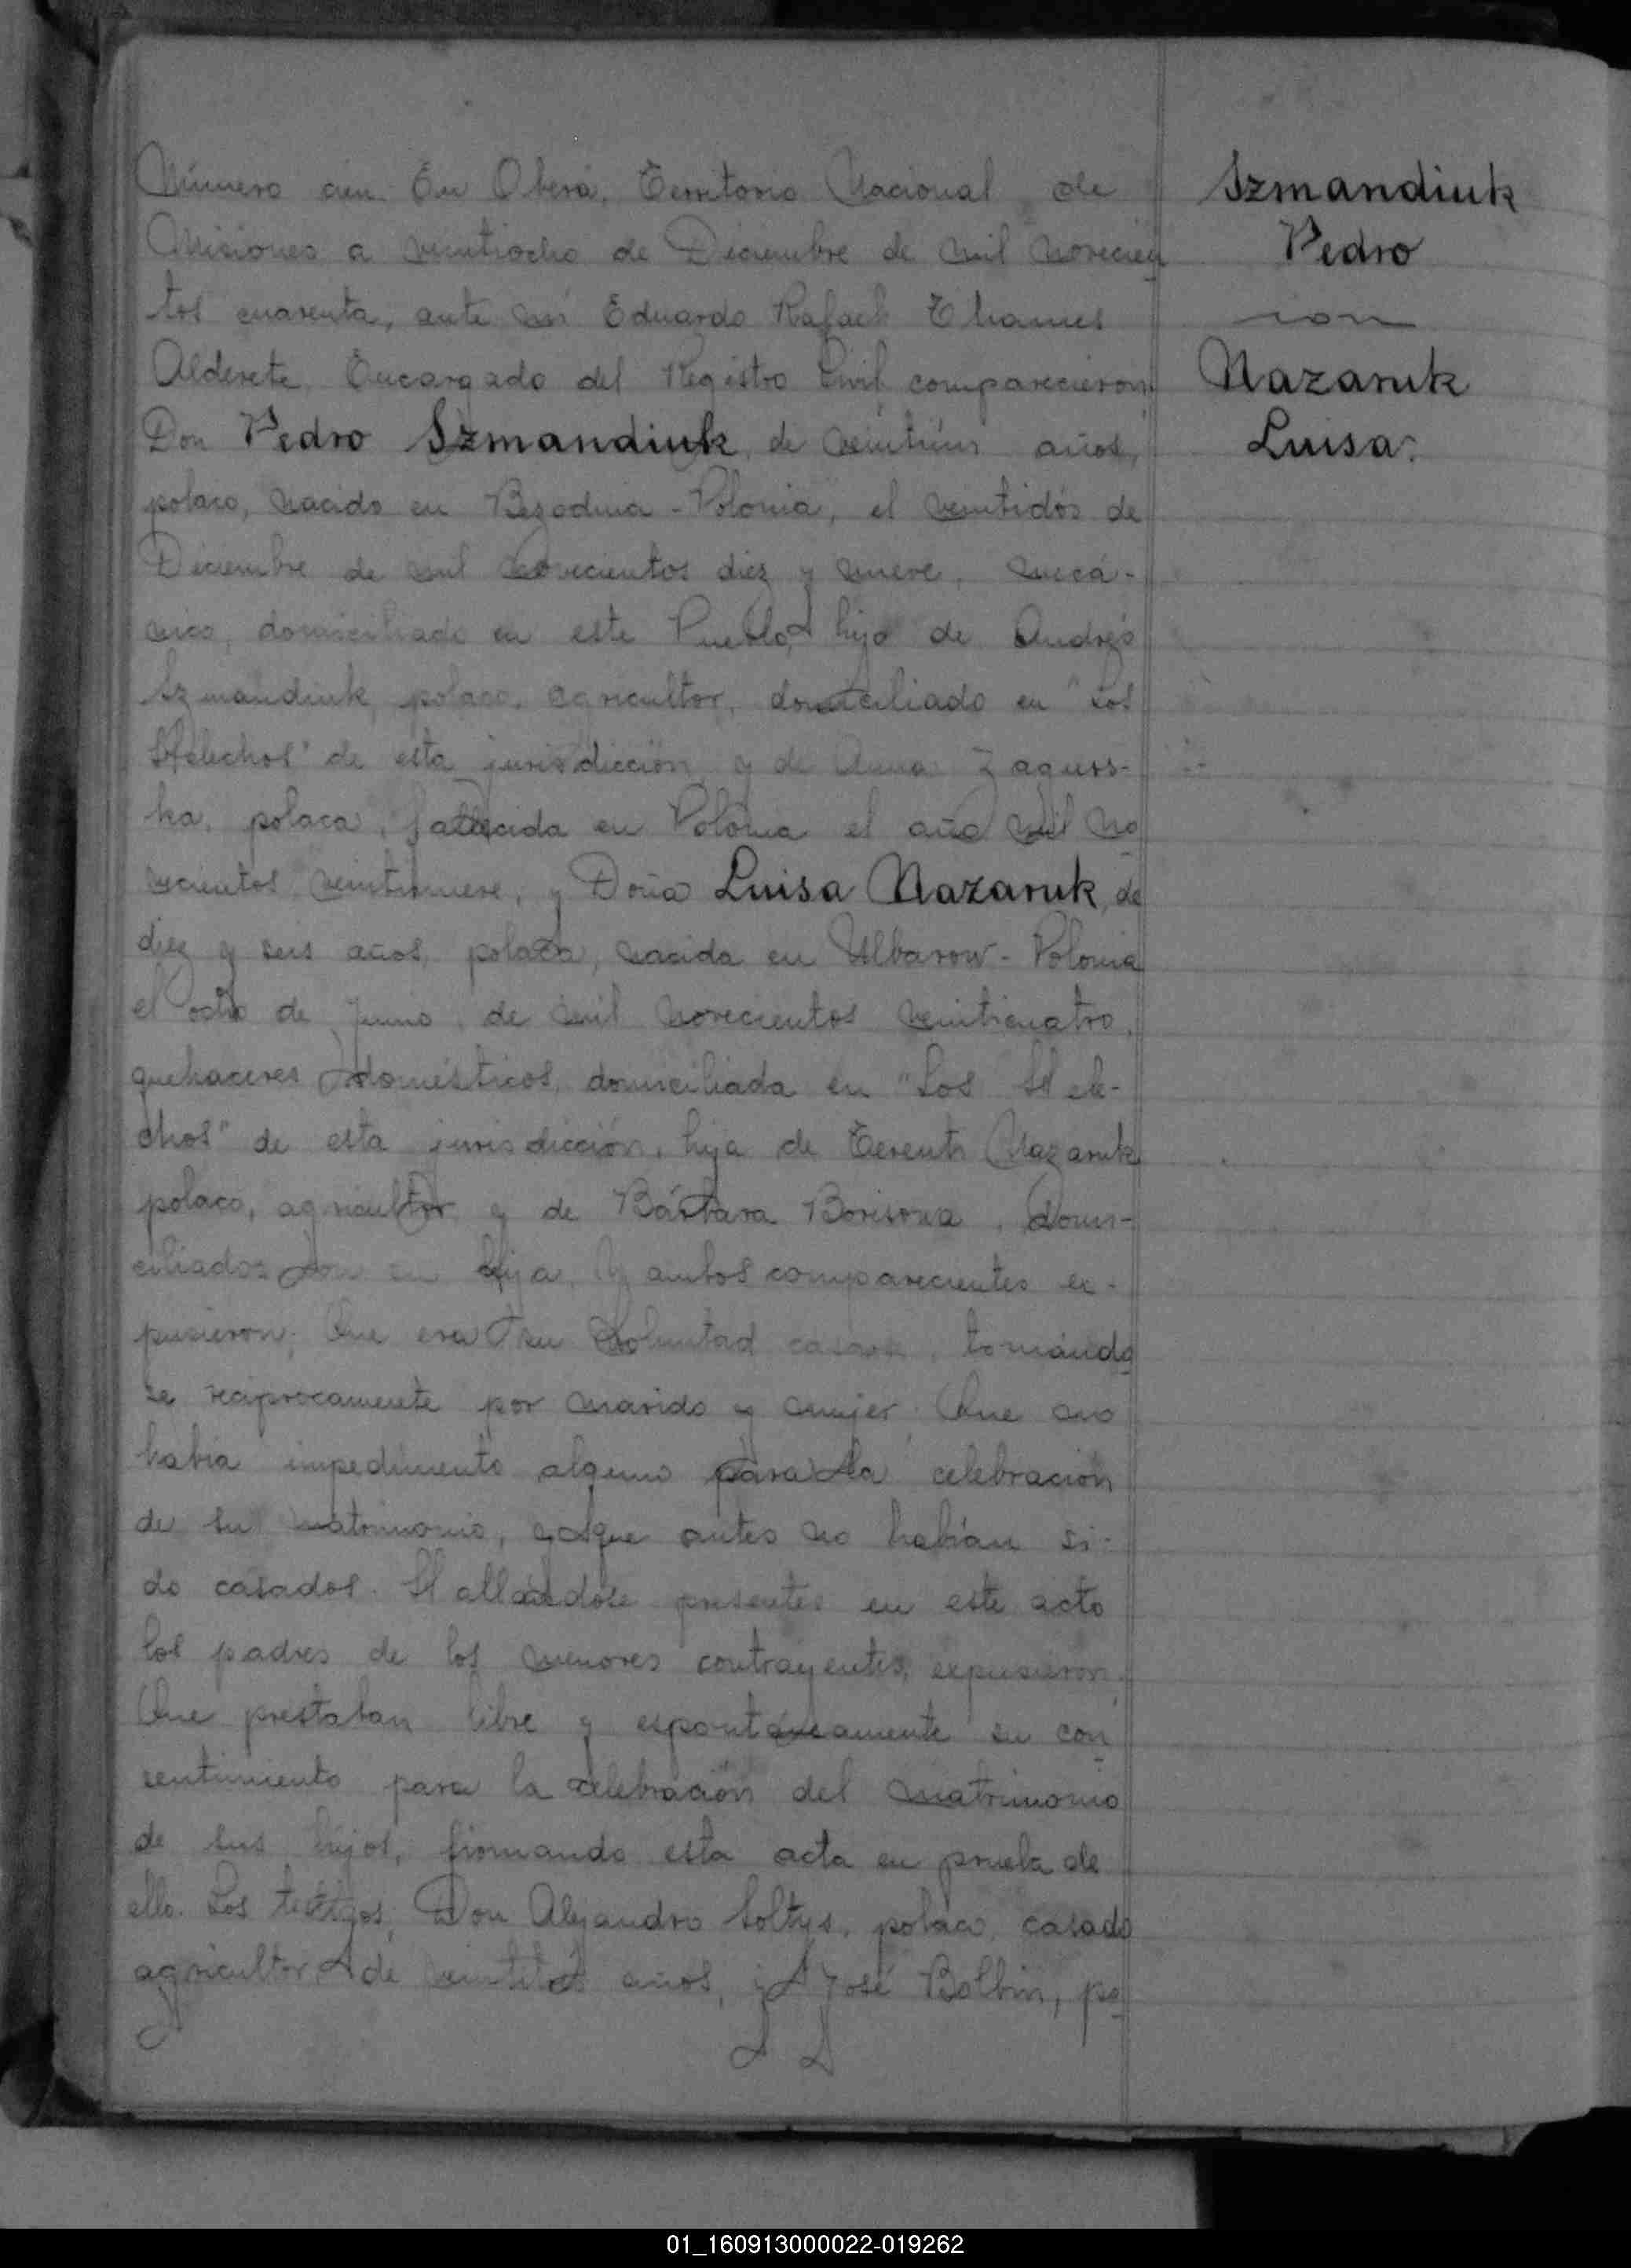 Número cien. En Oberá, Territorio Nacional de
Misiones a veintiocho de Diciembre de mil novecien
tos cuarenta, ante mí Eduardo Rafael Thames
Alderete, Encargado del Registro Civil comparecieron:
Don Pedro Szmandiuk, de veintiún años,
polaco, nacido en Bezodnia - Polonia, el veintidós de
Diciembre de mil novecientos diez y nueve, mecá-
nico, domiciliado en este Pueblo, hijo de Andrés
Szmandiuk, polaco, agricultor, domiciliado en "Los
Helechos" de esta jurisdicción, y de Anna
ka, polaca, fallecida en Polonia el año mil no
vecientos veintinueve, y Doña Luisa Nazaruk, de
diez y seis años, polaca, nacida en Ulbarow - Polonia
el ocho de Junio, de mil novecientos veinticuatro,
quehaceres domésticos, domiciliada en "Los Hele-
chos" de esta jurisdicción, hija de Terenti Nazaruk
polaco, agricultor y de Bárbara Borisowa, domi-
ciliados con su hija. Y ambos comparecientes ex-
pusieron; Que era su voluntad casarse, tomándo
se reciprocamente por marido y mujer. Que no
había impedimento alguno para la celebración
de su matrimonio, y que antes no habían si-
do casados. Hallándose presentes en este acto
los padres de los menores contrayentes, expusieron:
Que prestaban libre y espontáneamente su con
sentimiento para la celebración del matrimonio
de sus hijos, firmando esta acta en prueba de
ello. Los testigos; Don Alejandro Soltys, polaco, casado
agricultor de años, y José Bolbin, po
Szmandiuk
Pedro
con
Nazaruk
Luisa.
01_160913000022-019262